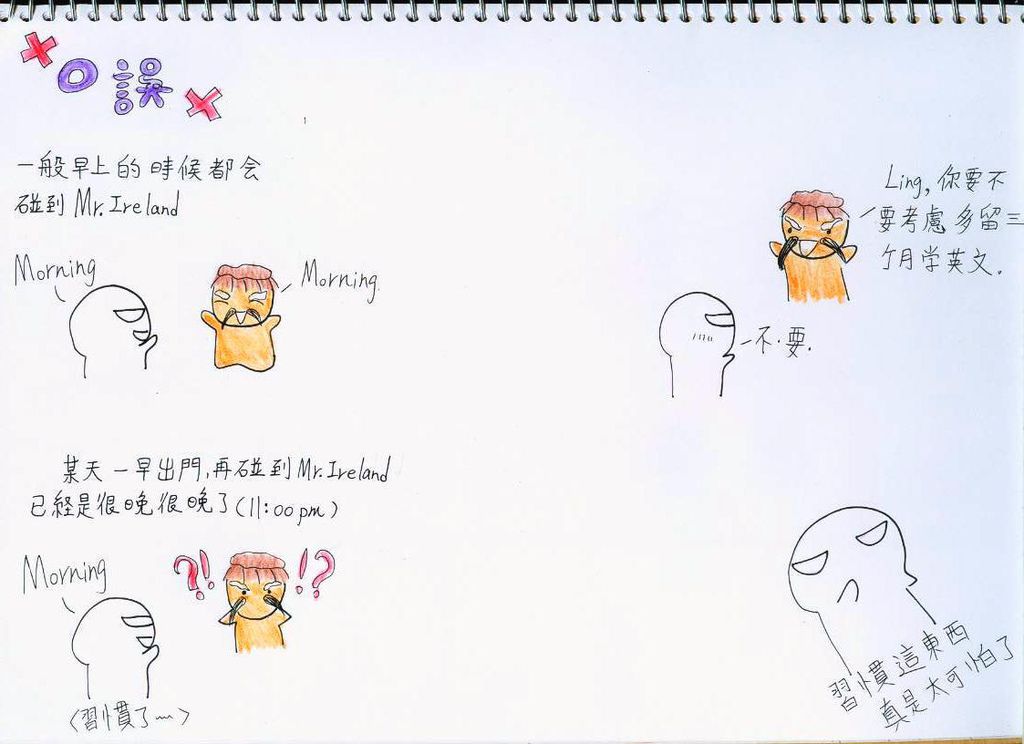 口誤
一般早上的時候都会
碰到 Mr. Ireland
Morning
Morning.
某天一早出門,再碰到 Mr. Ireland
已経是很晚很晚了(11:00 pm)
Morning
?! !?
(習慣了~)
Ling, 你要不
要考慮多留三
个月学英文.
不.要.
習慣這東西
真是太可怕了